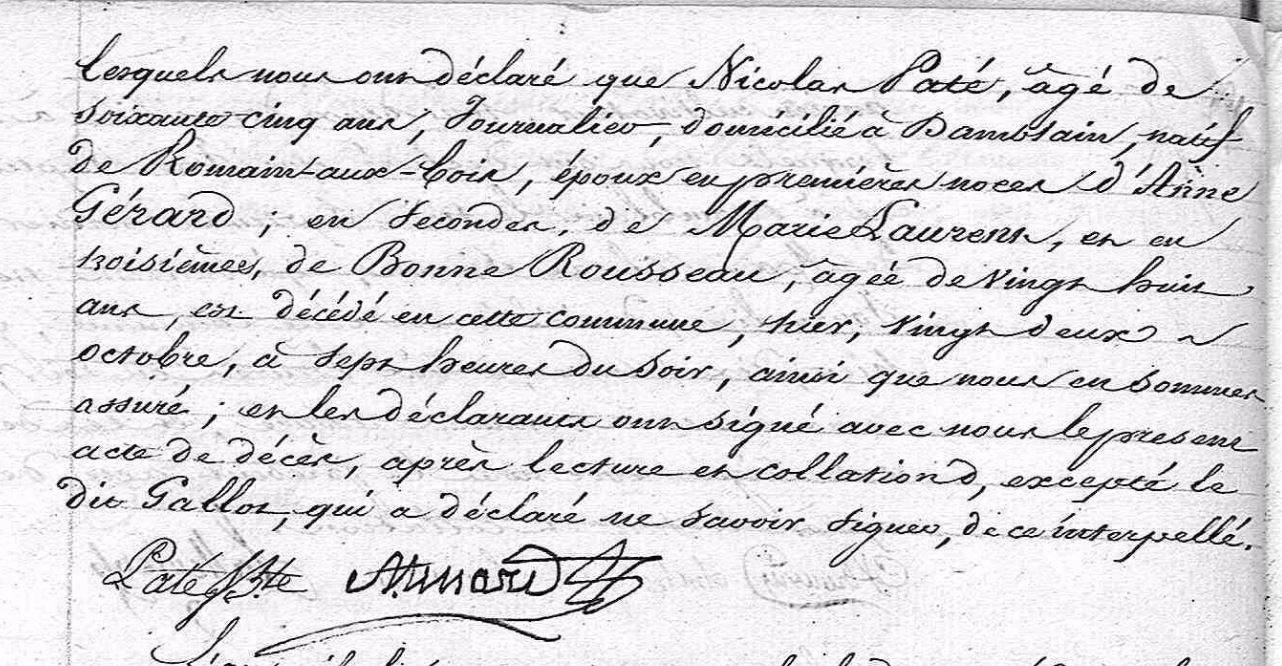 lesquels nous ont déclaré que Nicolas Paté, âgé de
soixante cinq ans, Journalier, domicilié à Damblain, natif
de Romain-aux-bois, époux en premières noces d'Anne
Gérard; en secondes, de Marie Laurent, et en
troisièmes, de Bonne Rousseau, âgée de vingt huit
ans, est décédé en cette commune, hier, vingt deux
octobre, à sept heures du soir, ainsi que nous en sommes
assuré; et les déclarants ont signé avec nous le present
acte de décès, après lecture et collation, excepté le
dit Gallot, qui a déclaré ne savoir signer, de ce interpellé.
Paté Bte